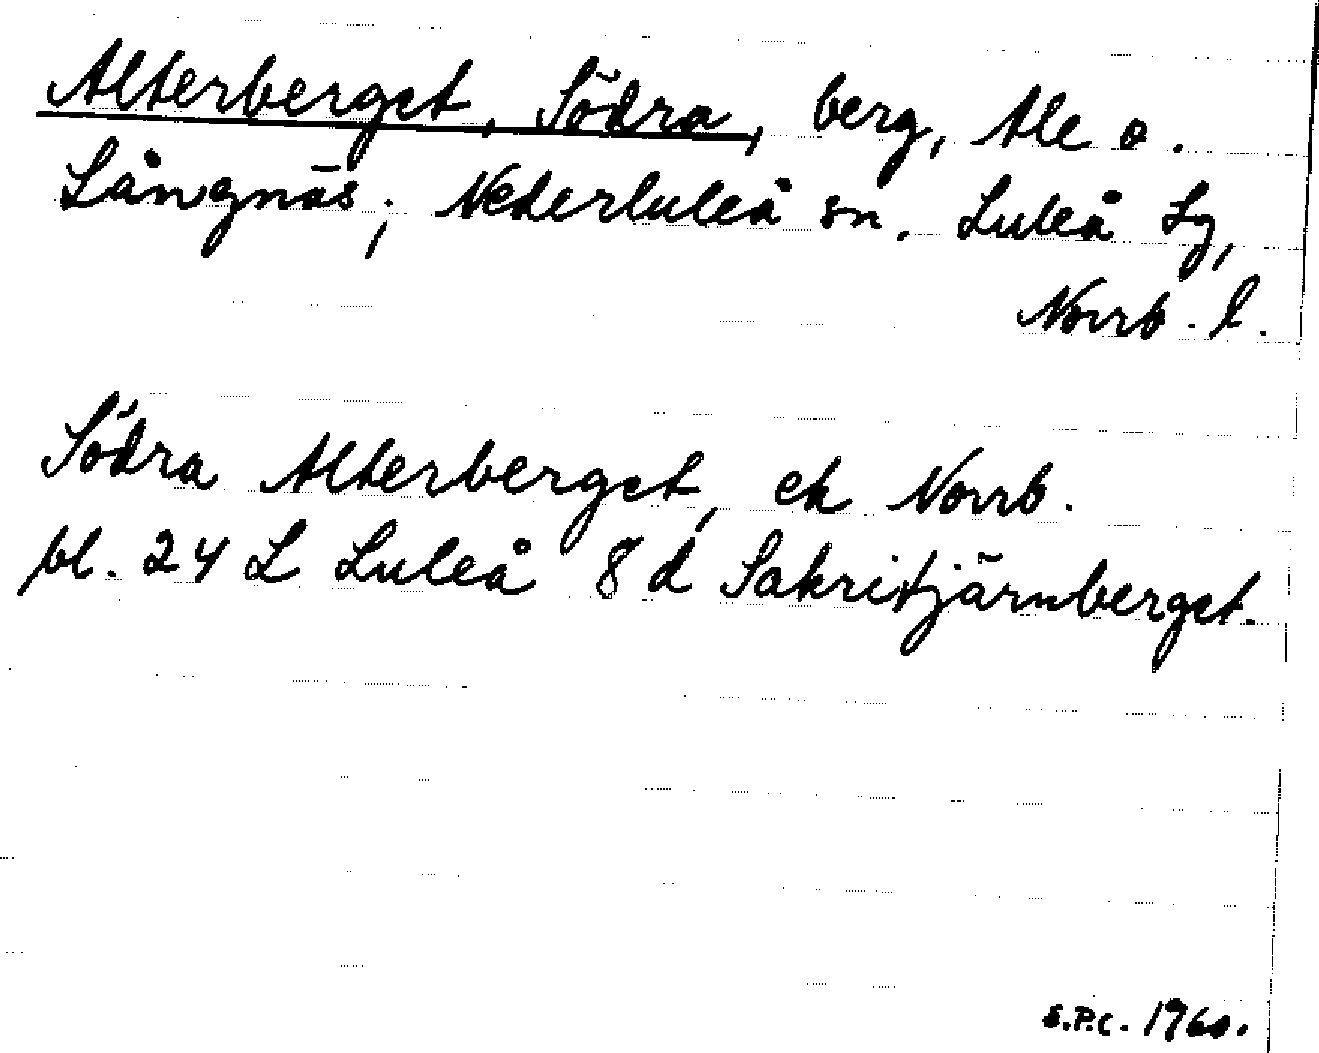 Alterberget, Södra, berg, Ale o.
Långnäs; Nederluleå sn. Luleå Lg,
Norrb. l.
Södra Alterberget, ek Norrb.
bl. 24 L Luleå 8 d Sakritjärnberget.
S.P.C. 1960.